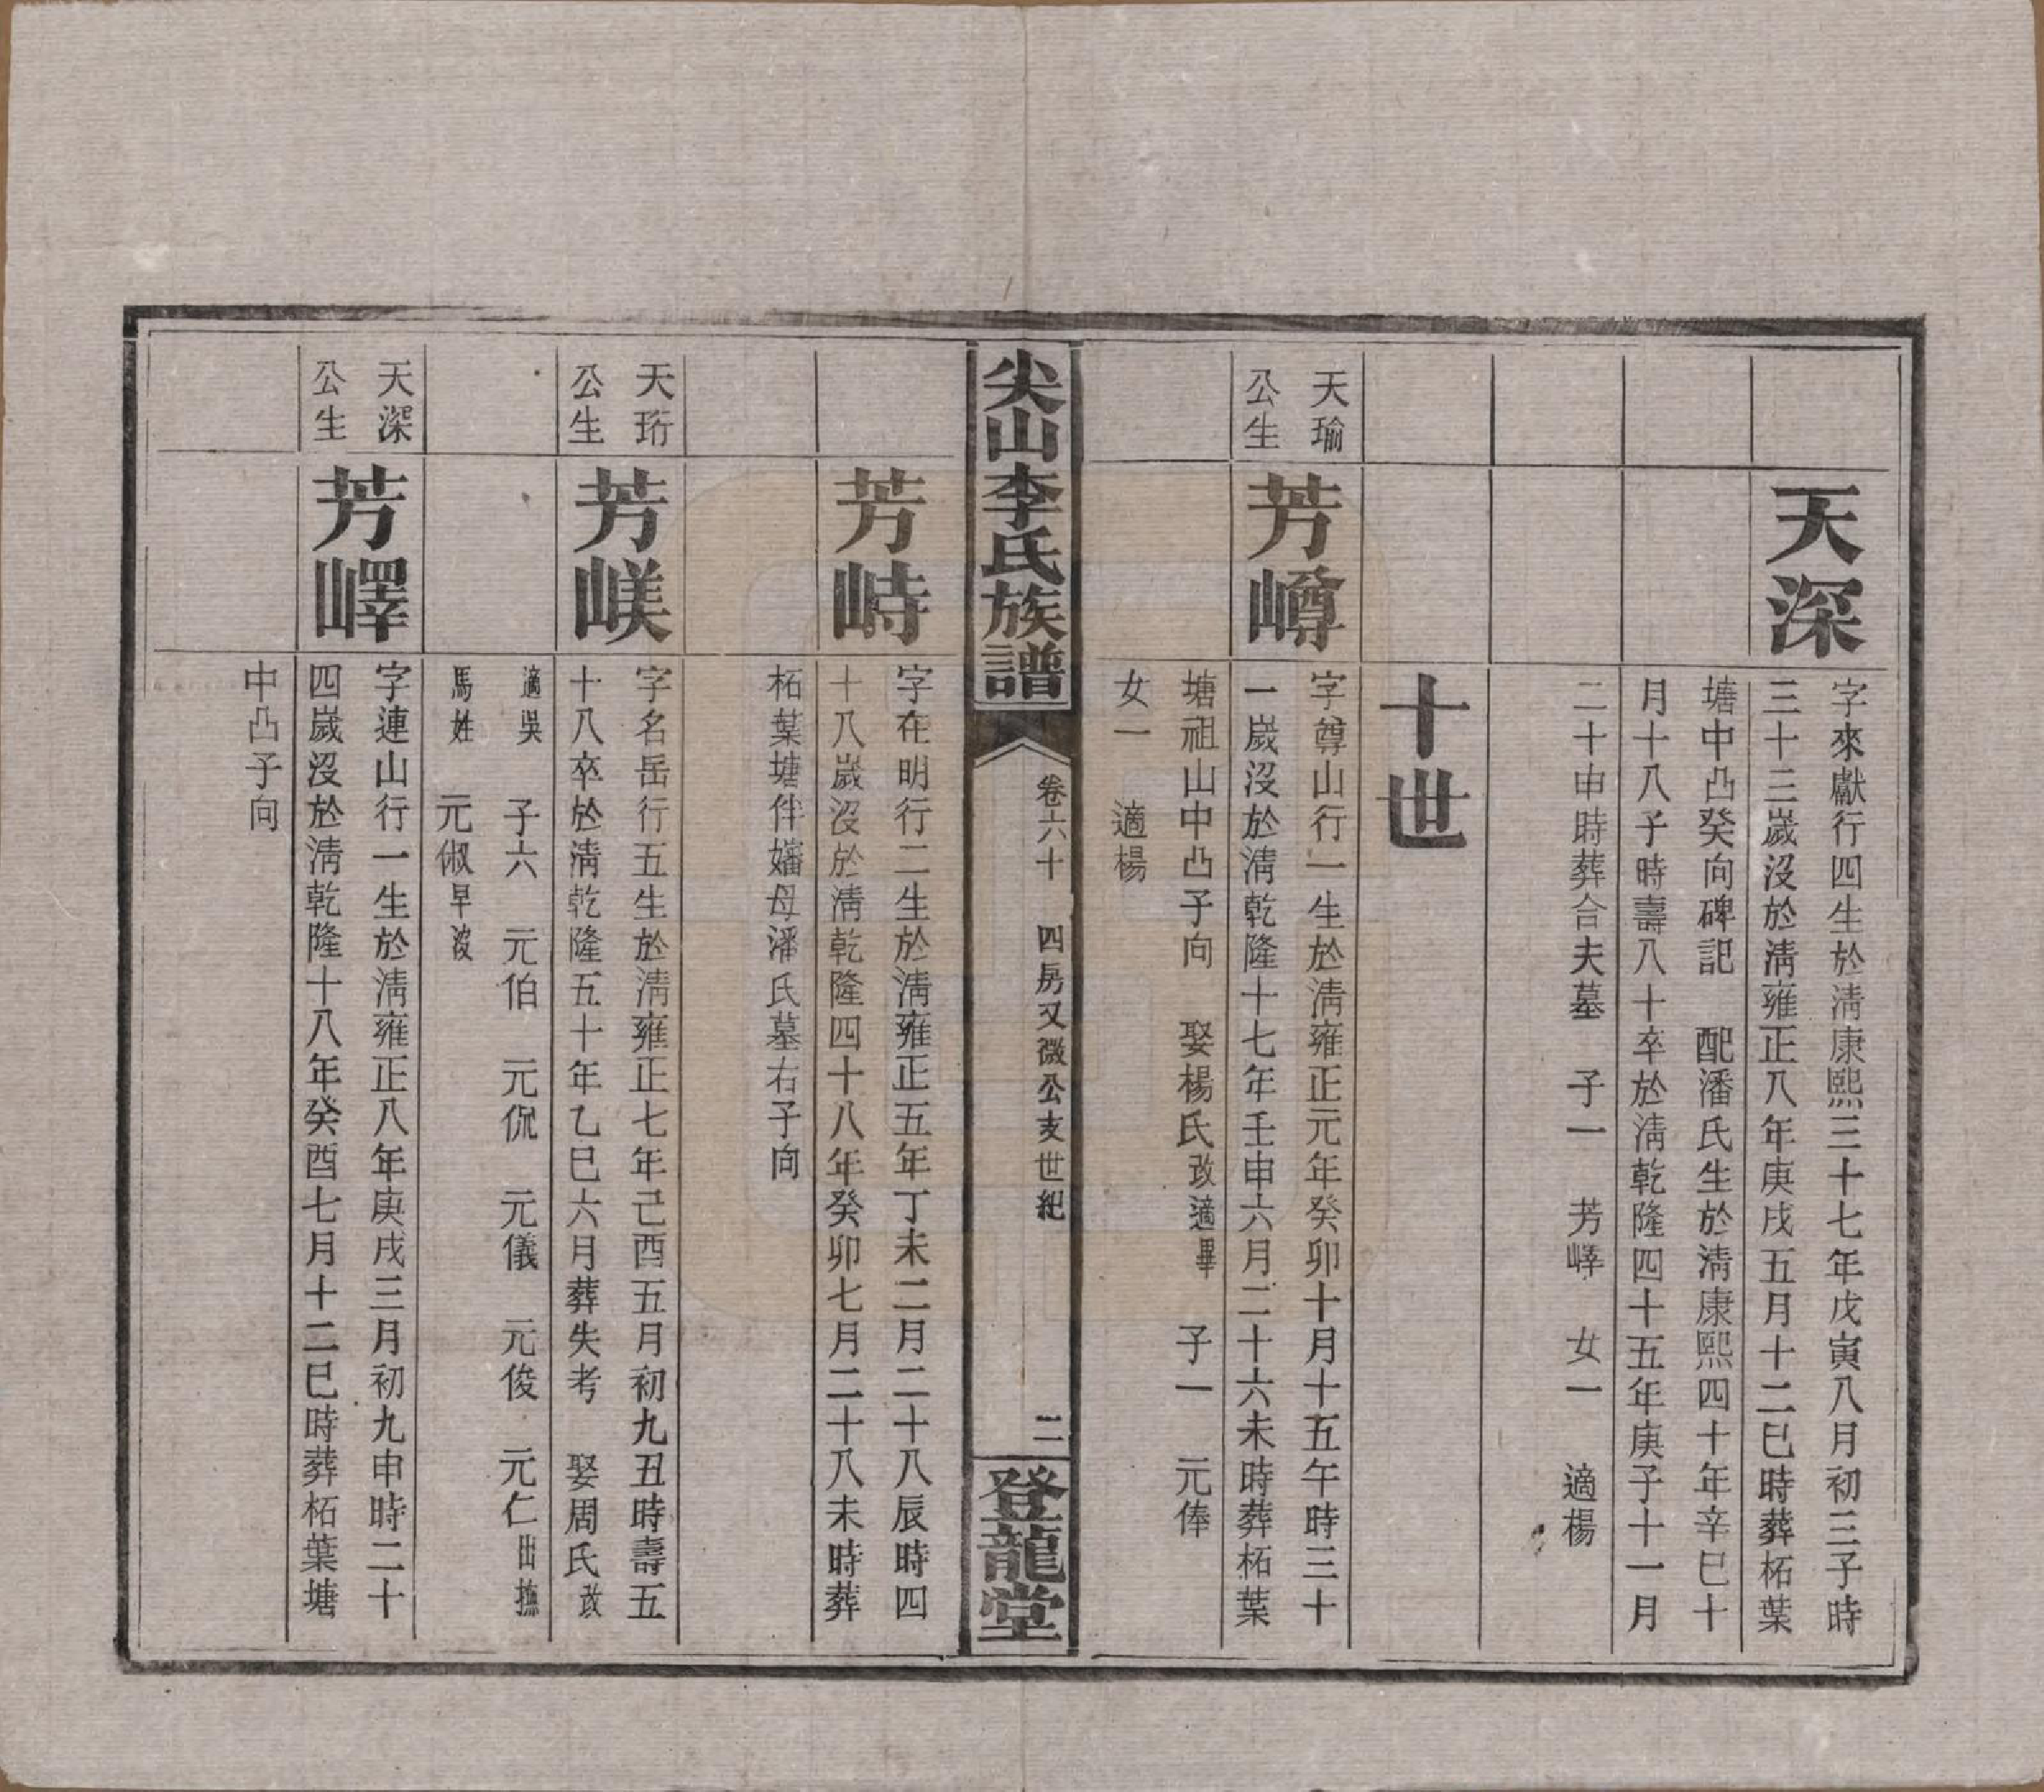 天深
字來獻行四生於淸康熙三十七年戊寅八月初三子時
三十三歲沒於淸雍正八年庚戌五月十二巳時葬柘葉
塘中凸癸向碑記　配潘氏生於淸康熙四十年辛巳十
月十八子時壽八十卒於淸乾隆四十五年庚子十一月
二十申時葬合夫墓　子一　芳嶧　女一　適楊
十世
天瑜
公生
芳嶟
字尊山行一生於淸雍正元年癸卯十月十五午時三十
一歲沒於淸乾隆十七年壬申六月二十六未時葬柘葉
塘祖山中凸子向　娶楊氏改適畢　子一　元俸
女一　適楊
尖山李氏族譜
卷六十　四房又微公支世紀
二
登龍堂
芳峙
字在明行二生於淸雍正五年丁未二月二十八辰時四
十八歲沒於淸乾隆四十八年癸卯七月二十八未時葬
柘葉塘伴嬸母潘氏墓右子向
天珩
公生
芳嵄
字名岳行五生於淸雍正七年己酉五月初九丑時壽五
十八卒於淸乾隆五十年乙巳六月葬失考　娶周氏改
適吳　子六　元伯　元侃　元儀　元俊　元仁出撫
馬姓　元俶早沒
天深
公生
芳嶧
字連山行一生於淸雍正八年庚戌三月初九申時二十
四歲沒於淸乾隆十八年癸酉七月十二巳時葬柘葉塘
中凸子向